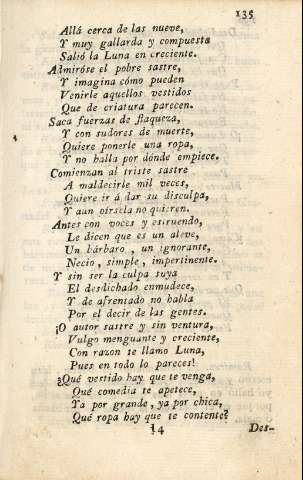 135
Allá cerca de las nueve,
Y muy gallarda y compuesta
Salió la Luna en creciente.
Admiróse el pobre sastre,
Y imagina cómo pueden
Venirle aquellos vestidos
Que de criatura parecen.
Saca fuerzas de flaqueza,
Y con sudores de muerte,
Quiere ponerle una ropa,
Y no halla por dónde empiece.
Comienzan al triste sastre
A maldecirle mil veces,
Quiere ir á dar su disculpa,
Y aun oírsela no quieren.
Antes con voces y estruendo,
Le dicen que es un aleve,
Un bárbaro, un ignorante,
Necio, simple, impertinente.
Y sin ser la culpa suya
El desdichado enmudece,
Y de afrentado no habla
Por el decir de las gentes.
¡O autor sastre y sin ventura,
Vulgo menguante y creciente,
Con razon te llamo Luna,
Pues en todo lo pareces!
¿Qué vestido hay que te venga,
Qué comedia te apetece,
Ya por grande, ya por chica,
Qué ropa hay que te contente?
I4 Des-